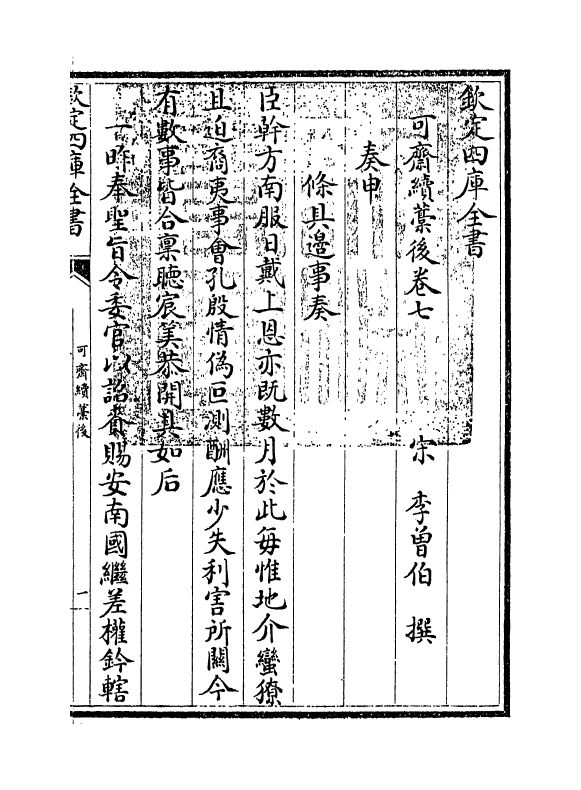 欽定四庫全書
可齋續藁後卷七
宋　李曽伯　撰
奏申
條具邉事奏
臣幹方南服日戴上恩亦既數月於此每惟地介蠻獠
且迫裔夷事會孔殷情偽叵測酬應少失利害所關今
有數事皆合稟聽宸筭恭開具如后
一昨奉聖旨令委官以詔賫賜安南國繼差權鈐轄
欽定四庫全書
可齋續藁後
一